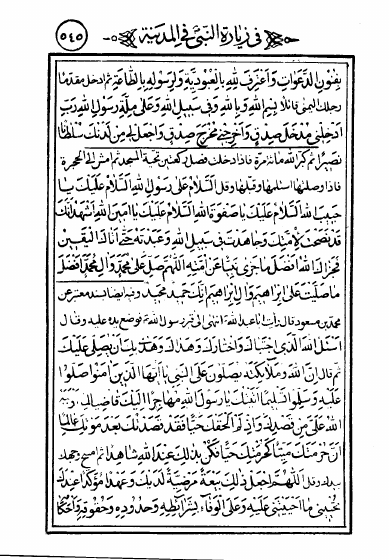 في زيارة النبي في المدينة
٥٤٥
بفنون الدعوات واعترف لله بالعبودية ولرسوله بالطاعة ثم ادخل مقدما
رجلك اليمنى قائلا بسم الله وبالله وفي سبيل الله وعلى ملة رسول الله رب
ادخلني مدخل صدق واخرجني مخرج صدق واجعل لي من لدنك سلطانا
نصيرا ثم كبر الله مائة مرة فاذا دخلت فصل ركعتين تحية المسجد ثم امش الى الحجرة
فاذا وصلتها استلمها وقبلها وقل السلام عليك يا رسول الله السلام عليك يا
حبيب الله السلام عليك يا صفوة الله السلام عليك يا امين الله اشهد انك
قد نصحت لامتك وجاهدت في سبيل الله وعبدته حتى اتاك اليقين
فجزاك الله افضل ما جزى نبيا عن امته اللهم صل على محمد وال محمد افضل
ما صليت على ابراهيم وال ابراهيم انك حميد مجيد وفيه ايضا بسند معتبر عن
محمد بن مسعود قال رايت ابا عبد الله انتهى الى قبر رسول الله فوضع يده عليه وقال
اسئل الله الذي اجتباك واختارك وهداك وهدى بك ان يصلي عليك
ثم قال ان الله وملائكته يصلون على النبي يا ايها الذين امنوا صلوا
عليه وسلموا تسليما اتيتك يا رسول الله مهاجرا اليك قاضيا لما اوجبه
الله علي من قصدك واذ لم الحقك حيا فقد قصدتك بعد موتك عالما
ان حرمتك ميتا كحرمتك حيا فكن لي بذلك عند الله شاهدا ثم امسح وجهك
بيدك وقل اللهم اجعل ذلك بيعة مرضية لديك وعهدا مؤكدا عندك
تحييني ما احييتني عليه وعلى الوفاء بشرائطه وحدوده وحقوقه واحكامه